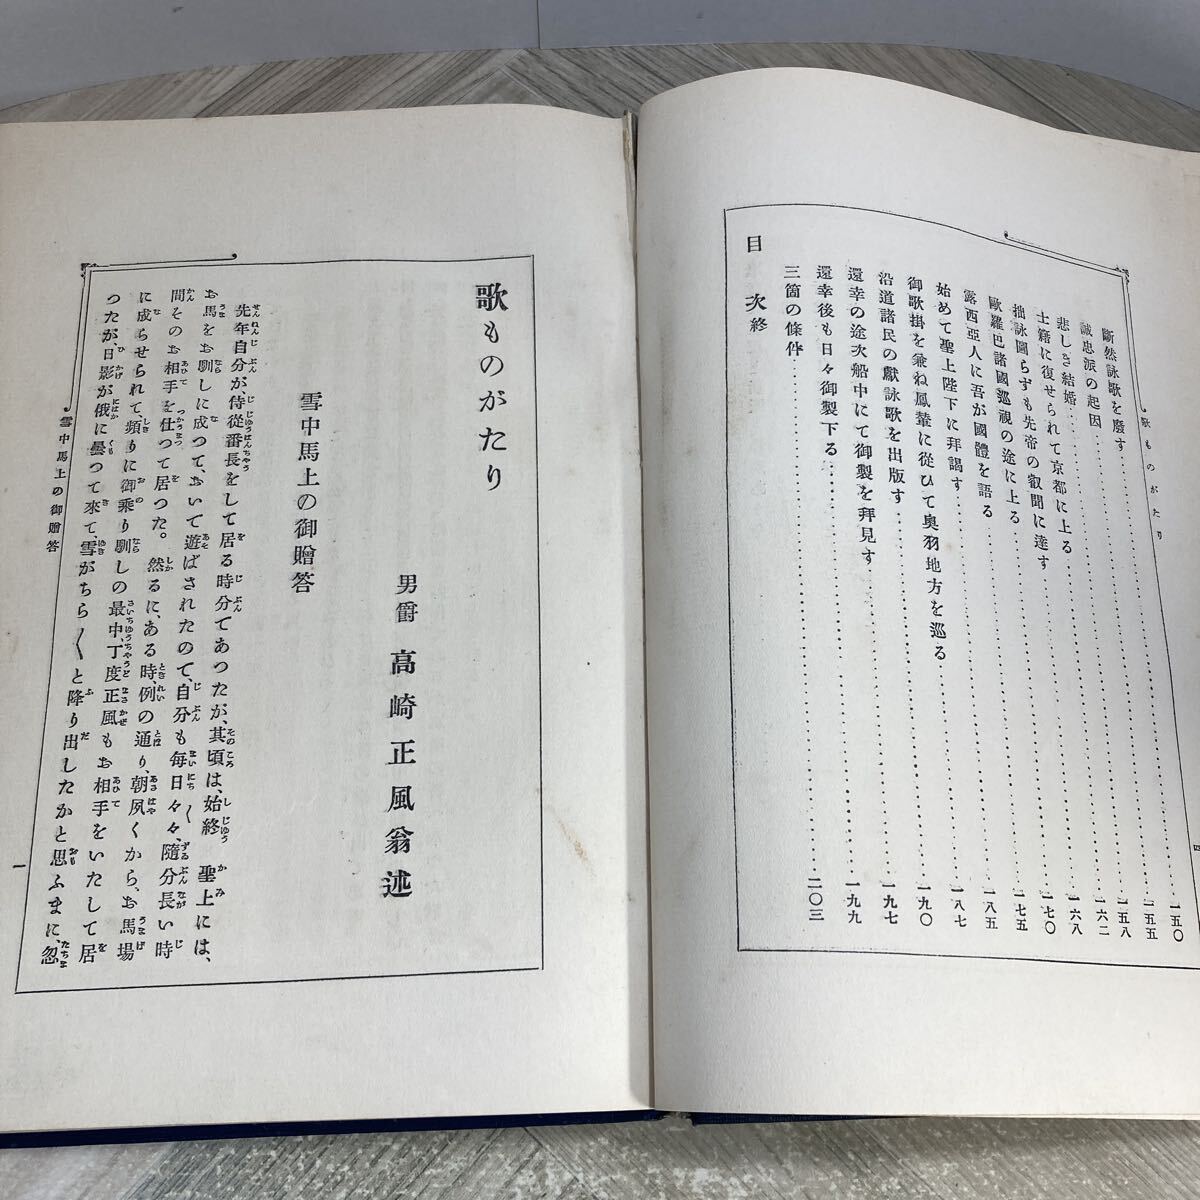 歌ものがたり
四
斷然詠歌を廢す……………一五〇
誠忠派の起因……………一五五
悲しき結婚……………一五八
士籍に復せられて京都に上る……………一六二
拙詠圖らずも先帝の叡聞に達す……………一六八
歐羅巴諸國巡視の途に上る……………一七〇
露西亞人に吾が國體を語る……………一七五
始めて聖上陛下に拜謁す……………一八五
御歌掛を兼ね鳳輦に從ひて奥羽地方を巡る……………一八七
沿道諸民の獻詠歌を出版す……………一九〇
還幸の途次船中にて御製を拜見す……………一九七
還幸後も日々御製下る……………一九九
三箇の條件……………二〇三
目次終
歌ものがたり
男爵 高崎正風翁述
雪中馬上の御贈答
先年自分が侍從番長をして居る時分であつたが、其頃は、始終 聖上には、
お馬をお馴しに成つて、おいで遊ばされたので、自分も毎日々々、隨分長い時
間そのお相手を仕つて居つた。然るに、ある時、例の通り、朝夙くから、お馬場
に成らせられて、頻りに御乘り馴しの最中、丁度正風もお相手をいたして居
つたが、日影が俄に曇つて來て、雪がちら〳〵と降り出したかと思ふまに、忽
雪中馬上の御贈答
一